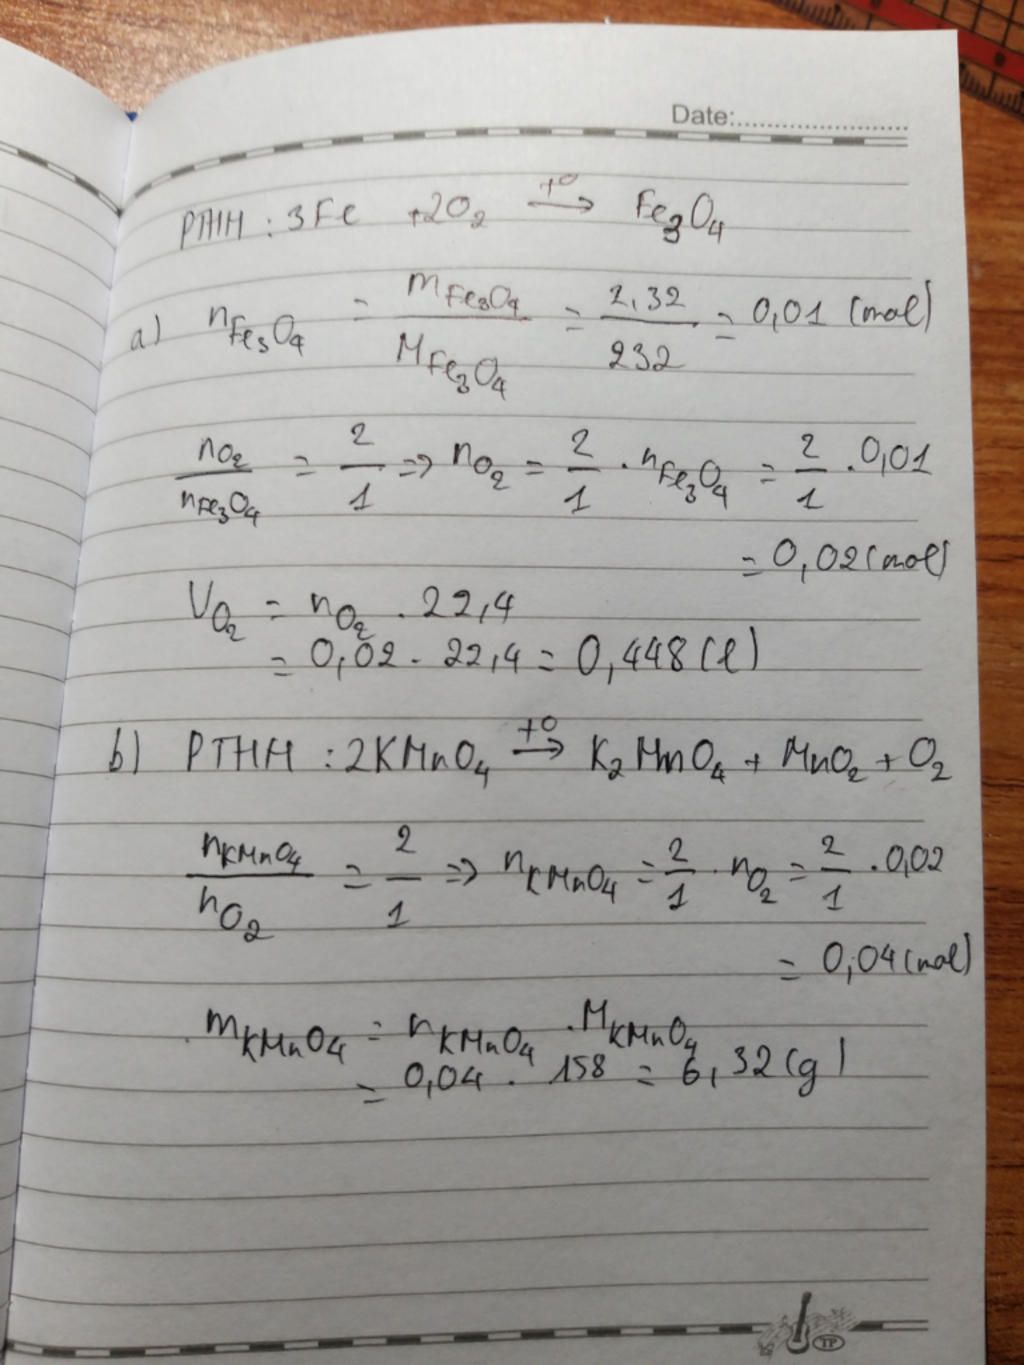 Date:
PTHH : 3Fe + 2O₂ →(t°) Fe₃O₄
a) n Fe₃O₄ = m Fe₃O₄ / M Fe₃O₄ = 2,32 / 232 = 0,01 (mol)
n O₂ / n Fe₃O₄ = 2/1 => n O₂ = 2/1 . n Fe₃O₄ = 2/1 . 0,01
= 0,02 (mol)
V O₂ = n O₂ . 22,4
= 0,02 . 22,4 = 0,448 (l)
b) PTHH : 2KMnO₄ →(t°) K₂MnO₄ + MnO₂ + O₂
n KMnO₄ / n O₂ = 2/1 => n KMnO₄ = 2/1 . n O₂ = 2/1 . 0,02
= 0,04 (mol)
m KMnO₄ = n KMnO₄ . M KMnO₄
= 0,04 . 158 = 6,32 (g)
TP